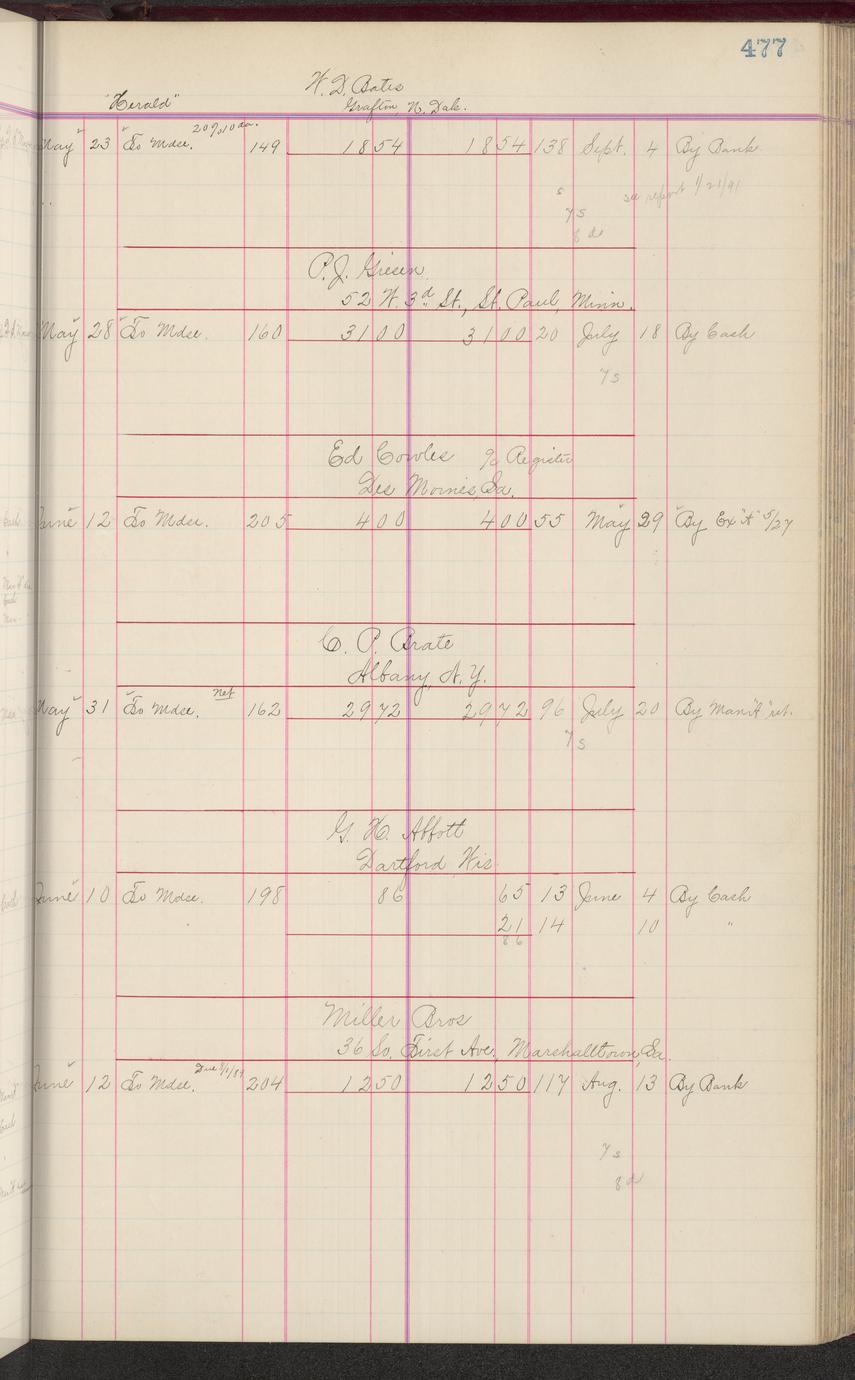 477
W. D. Bates
"Herald" Grafton, N. Dak.
20% 10 da.
May 23 To Mdse. 149 18 54 18 54 138 Sept. 4 By Bank
see report 1/21/91
s
7 s
8 d
P. J. Giesen
52 W. 3d St., St. Paul, Minn.
May 28 To Mdse. 160 31 00 31 00 20 July 18 By Cash
7 s
Ed Cowles % Register
Des Moines, Ia.
June 12 To Mdse. 205 4 00 4 00 55 May 29 By Ex "A" 5/27
C. P. Brate
Albany, N.Y.
net
May 31 To Mdse. 162 29 72 29 72 96 July 20 By Man'f't
7 s
G. H. Abbott
Dartford Wis
June 10 To Mdse. 198 86 65 13 June 4 By Cash
21 14 10 "
86
Miller Bros
36 So. First Ave., Marshalltown, Ia.
June 12 To Mdse. Due 8/1/89 204 12 50 12 50 117 Aug. 13 By Bank
7 s
8 d